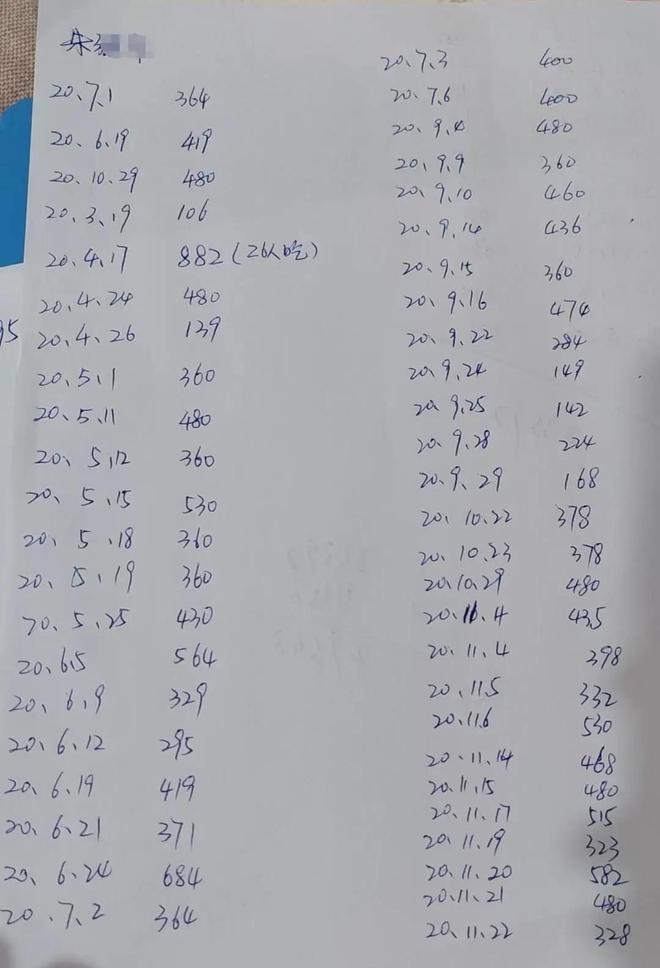 朱
20、7、1 364
20、6、19 419
20、10、29 480
20、3、19 106
20、4、17 882（26人吃）
20、4、24 480
95
20、4、26 139
20、5、1 360
20、5、11 480
20、5、12 360
20、5、15 530
20、5、18 360
20、5、19 360
20、5、25 430
20、6、5 564
20、6、9 329
20、6、12 295
20、6、19 419
20、6、21 371
20、6、24 684
20、7、2 364
20、7、3 400
20、7、6 400
20、9、4 480
20、9、9 360
20、9、10 460
20、9、14 436
20、9、15 360
20、9、16 474
20、9、22 284
20、9、24 149
20、9、25 142
20、9、28 224
20、9、29 168
20、10、22 378
20、10、23 378
20、10、29 480
20、11、4 435
20、11、4 398
20、11、5 332
20、11、6 530
20、11、14 468
20、11、15 480
20、11、17 515
20、11、19 323
20、11、20 582
20、11、21 480
20、11、22 328